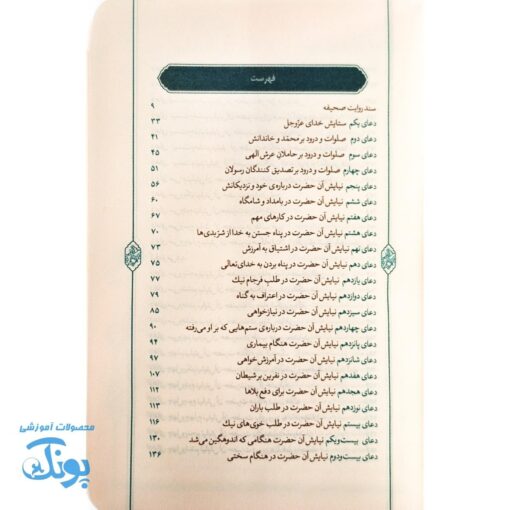 فهرست
سند روایت صحیفه ۹
دعای یکم ستایش خدای عزّوجل ۳۳
دعای دوم صلوات و درود بر محمّد و خاندانش ۴۱
دعای سوم صلوات و درود بر حاملان عرش الهی ۴۵
دعای چهارم صلوات و درود بر تصدیق کنندگان رسولان ۵۱
دعای پنجم نیایش آن حضرت درباره‌ی خود و نزدیکانش ۵۶
دعای ششم نیایش آن حضرت در بامداد و شامگاه ۶۰
دعای هفتم نیایش آن حضرت در کارهای مهم ۶۷
دعای هشتم نیایش آن حضرت در پناه جستن به خدا از شرّ بدی‌ها ۷۰
دعای نهم نیایش آن حضرت در اشتیاق به آمرزش ۷۳
دعای دهم نیایش آن حضرت در پناه بردن به خدای تعالی ۷۵
دعای یازدهم نیایش آن حضرت در طلب فرجام نیك ۷۷
دعای دوازدهم نیایش آن حضرت در اعتراف به گناه ۷۹
دعای سیزدهم نیایش آن حضرت در نیازخواهی ۸۵
دعای چهاردهم نیایش آن حضرت درباره‌ی ستم‌هایی که بر او می‌رفته ۹۰
دعای پانزدهم نیایش آن حضرت هنگام بیماری ۹۴
دعای شانزدهم نیایش آن حضرت در آمرزش‌خواهی ۹۷
دعای هفدهم نیایش آن حضرت در نفرین بر شیطان ۱۰۷
دعای هجدهم نیایش آن حضرت برای دفع بلاها ۱۱۲
دعای نوزدهم نیایش آن حضرت در طلب باران ۱۱۳
دعای بیستم نیایش آن حضرت در طلب خوی‌های نیك ۱۱۶
دعای بیست‌ویکم نیایش آن حضرت هنگامی که اندوهگین می‌شد ۱۳۰
دعای بیست‌ودوم نیایش آن حضرت در هنگام سختی ۱۳۶
محصولات آموزشی
پونک